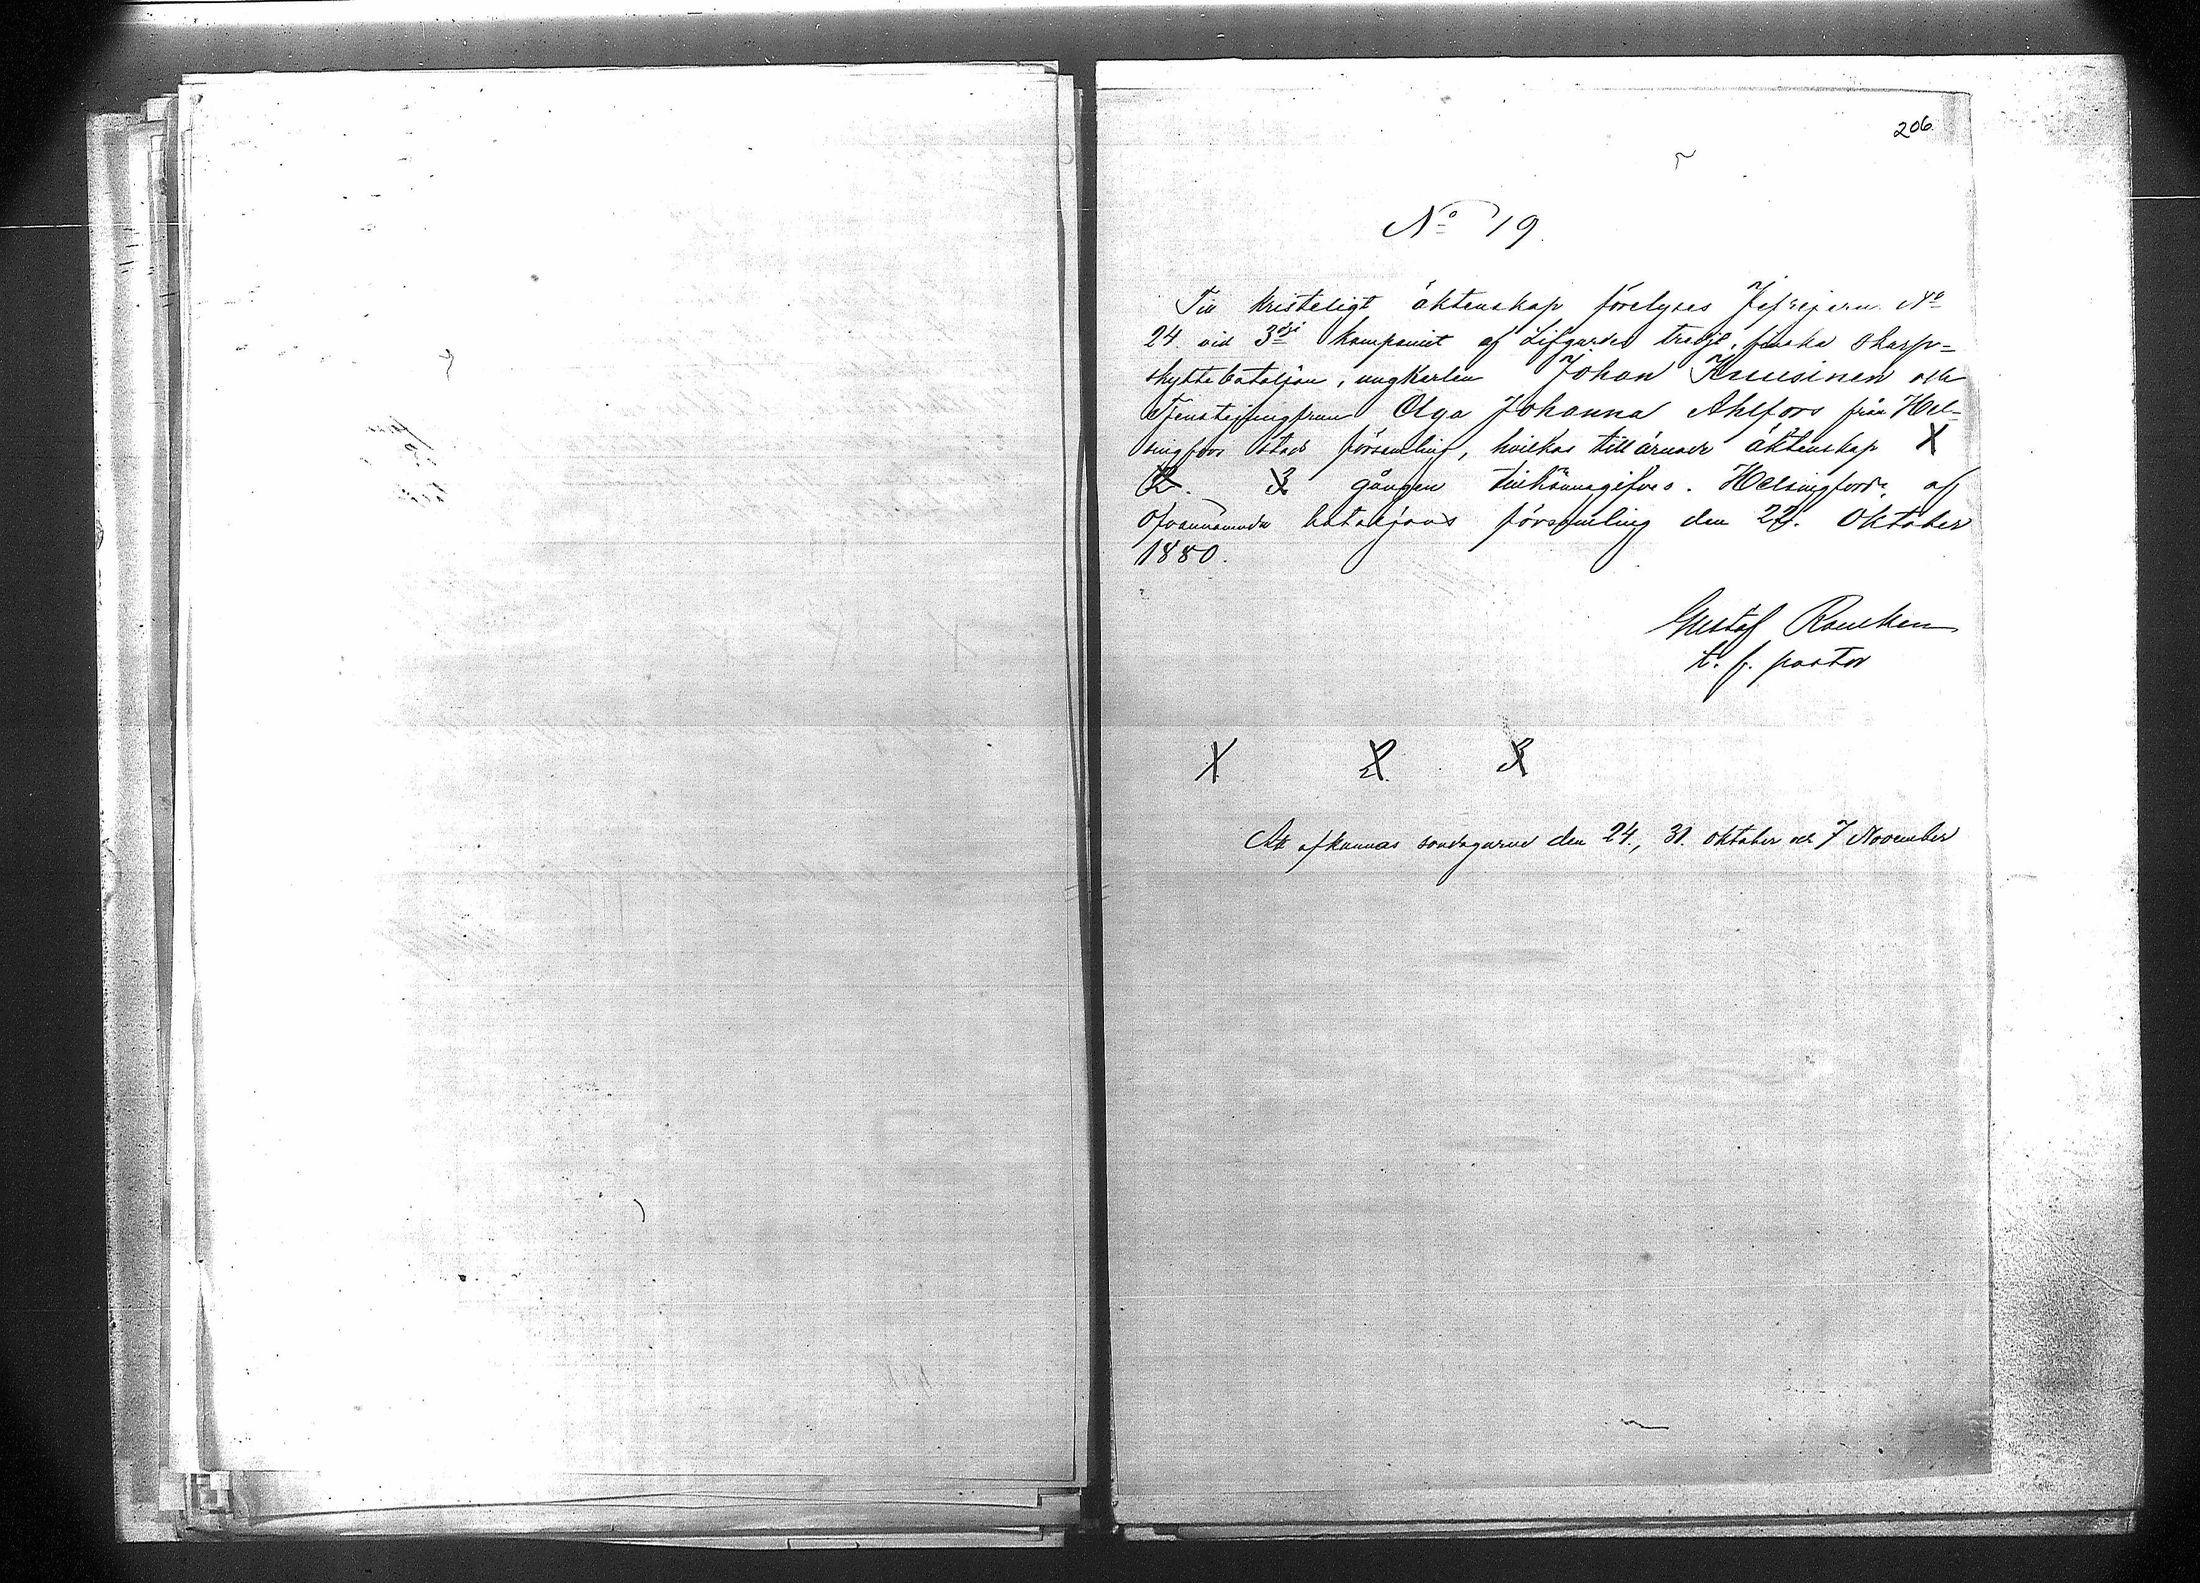 206.
No 19.
Till kristeligt äktenskap förelyses Jefrejern No
24 vid 3dje kompaniet af Lifgardes finska skarp=
skyttebataljon, ungkarlen Johan Kuusinen och
tjenstejungfrun Olga Johanna Ahlfors från Hel-
singfors stads församling, hvilkas tillärnade äktenskap 1
2. 3 gången tillkännagifves. Helsingfors, af
ofvannämnda bataljons församling den 22. Oktober
1880.
Gustaf
t. f. pastor
1 2. 3
Att afkunnas söndagarne den 24., 31. Oktober och 7 November